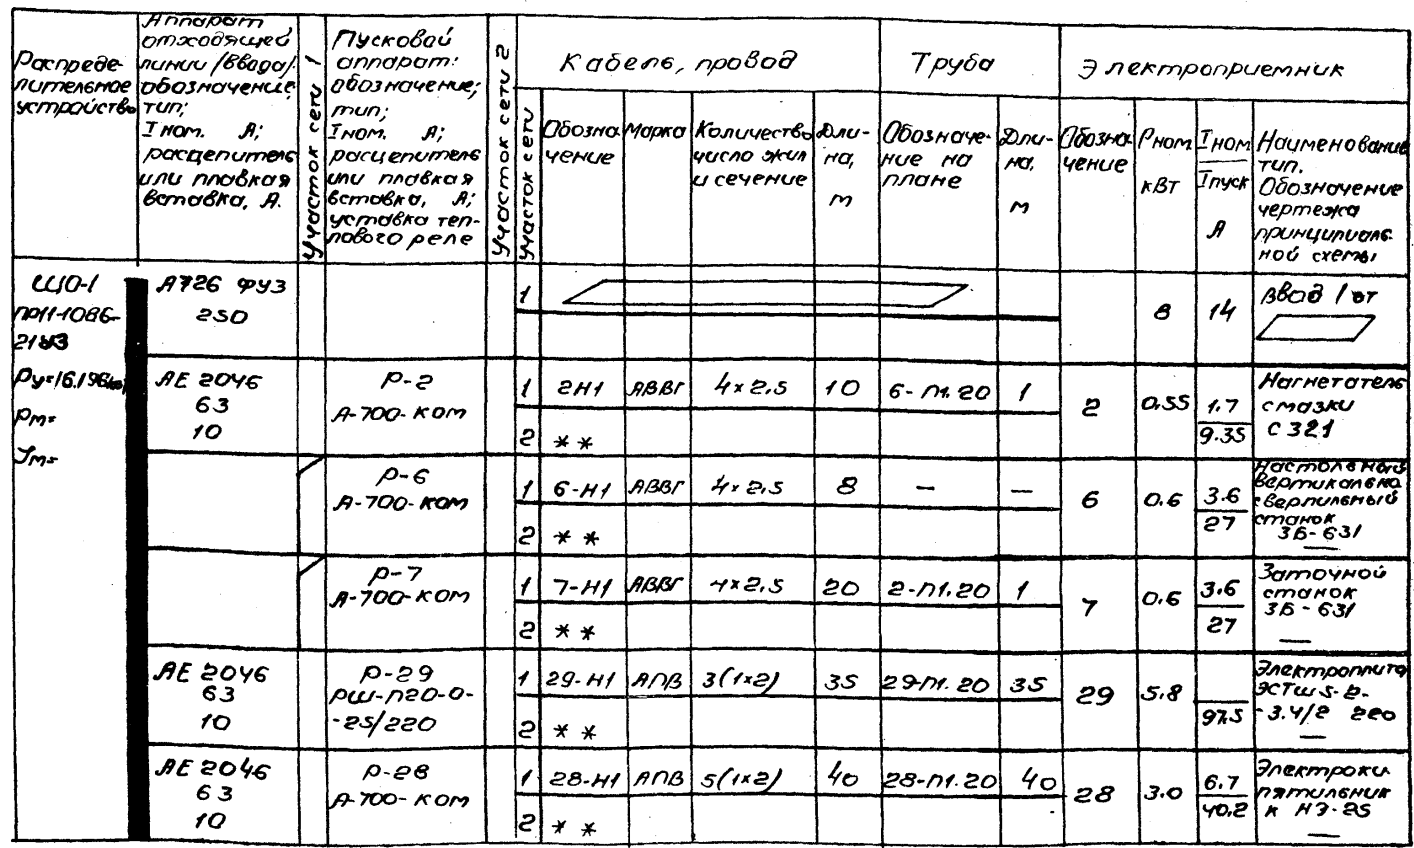 Распреде-
лительное
устройство
Аппарат
отходящей
линии /ввода/
обозначение,
тип;
Iном. А;
расцепитель
или плавкая
вставка, А.
Участок сети 1
Пусковой
аппарат:
обозначение;
тип;
Iном. А;
расцепитель
или плавкая
вставка, А;
уставка теп-
лового реле
Участок сети 2
Участок сети
Кабель, провод
Обозна-
чение
Марка
Количество
число жил
и сечение
Дли-
на,
м
Труба
Обозначе-
ние на
плане
Дли-
на,
м
Электроприемник
Обозна-
чение
Рном
кВт
Iном
Iпуск
А
Наименование
тип.
Обозначение
чертежа
принципиаль-
ной схемы
ЩО-1
ПР11-1086-
21У3
Ру=16.196
Рм=
Jм=
А726 ФУЗ
250
1
8
14
Ввод 1 от
АЕ 2046
63
10
Р-2
А-700-КОМ
1 2Н1 АВВГ 4×2,5 10 6-П1.20 1
2 * *
2
0.55
1.7
9.35
Нагнетатель
смазки
С 321
Р-6
А-700-КОМ
1 6-Н1 АВВГ 4×2,5 8 — —
2 * *
6
0.6
3.6
27
Настольный
вертикально
сверлильный
станок
3Б-631
—
Р-7
А-700-КОМ
1 7-Н1 АВВГ 4×2,5 20 2-П1.20 1
2 * *
7
0.6
3.6
27
Заточной
станок
3Б-631
—
АЕ 2046
63
10
Р-29
РШ-П20-0-
-25/220
1 29-Н1 АПВ 3(1×2) 35 29-П1.20 35
2 * *
29
5.8
97.5
Электроплита
ЭСТШ 5-2-
-3.4/2 220
—
АЕ 2046
63
10
Р-28
А-700-КОМ
1 28-Н1 АПВ 5(1×2) 40 28-П1.20 40
2 * *
28
3.0
6.7
40.2
Электроки
пятильник
к НЭ-25
—